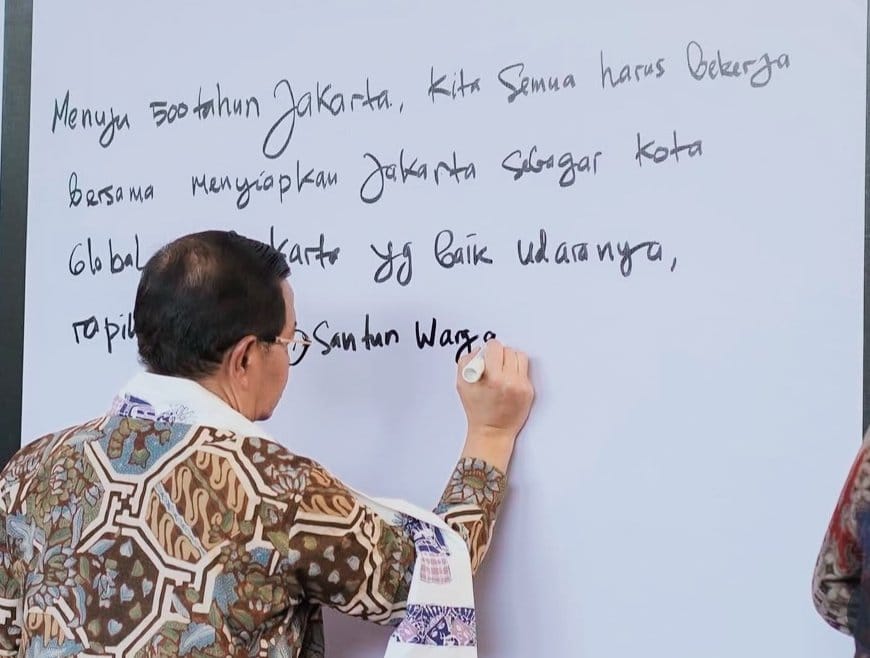 Menuju 500 tahun Jakarta, kita semua harus bekerja
bersama menyiapkan Jakarta sebagai kota
Global karta yg baik udaranya,
rapih Santun Warga